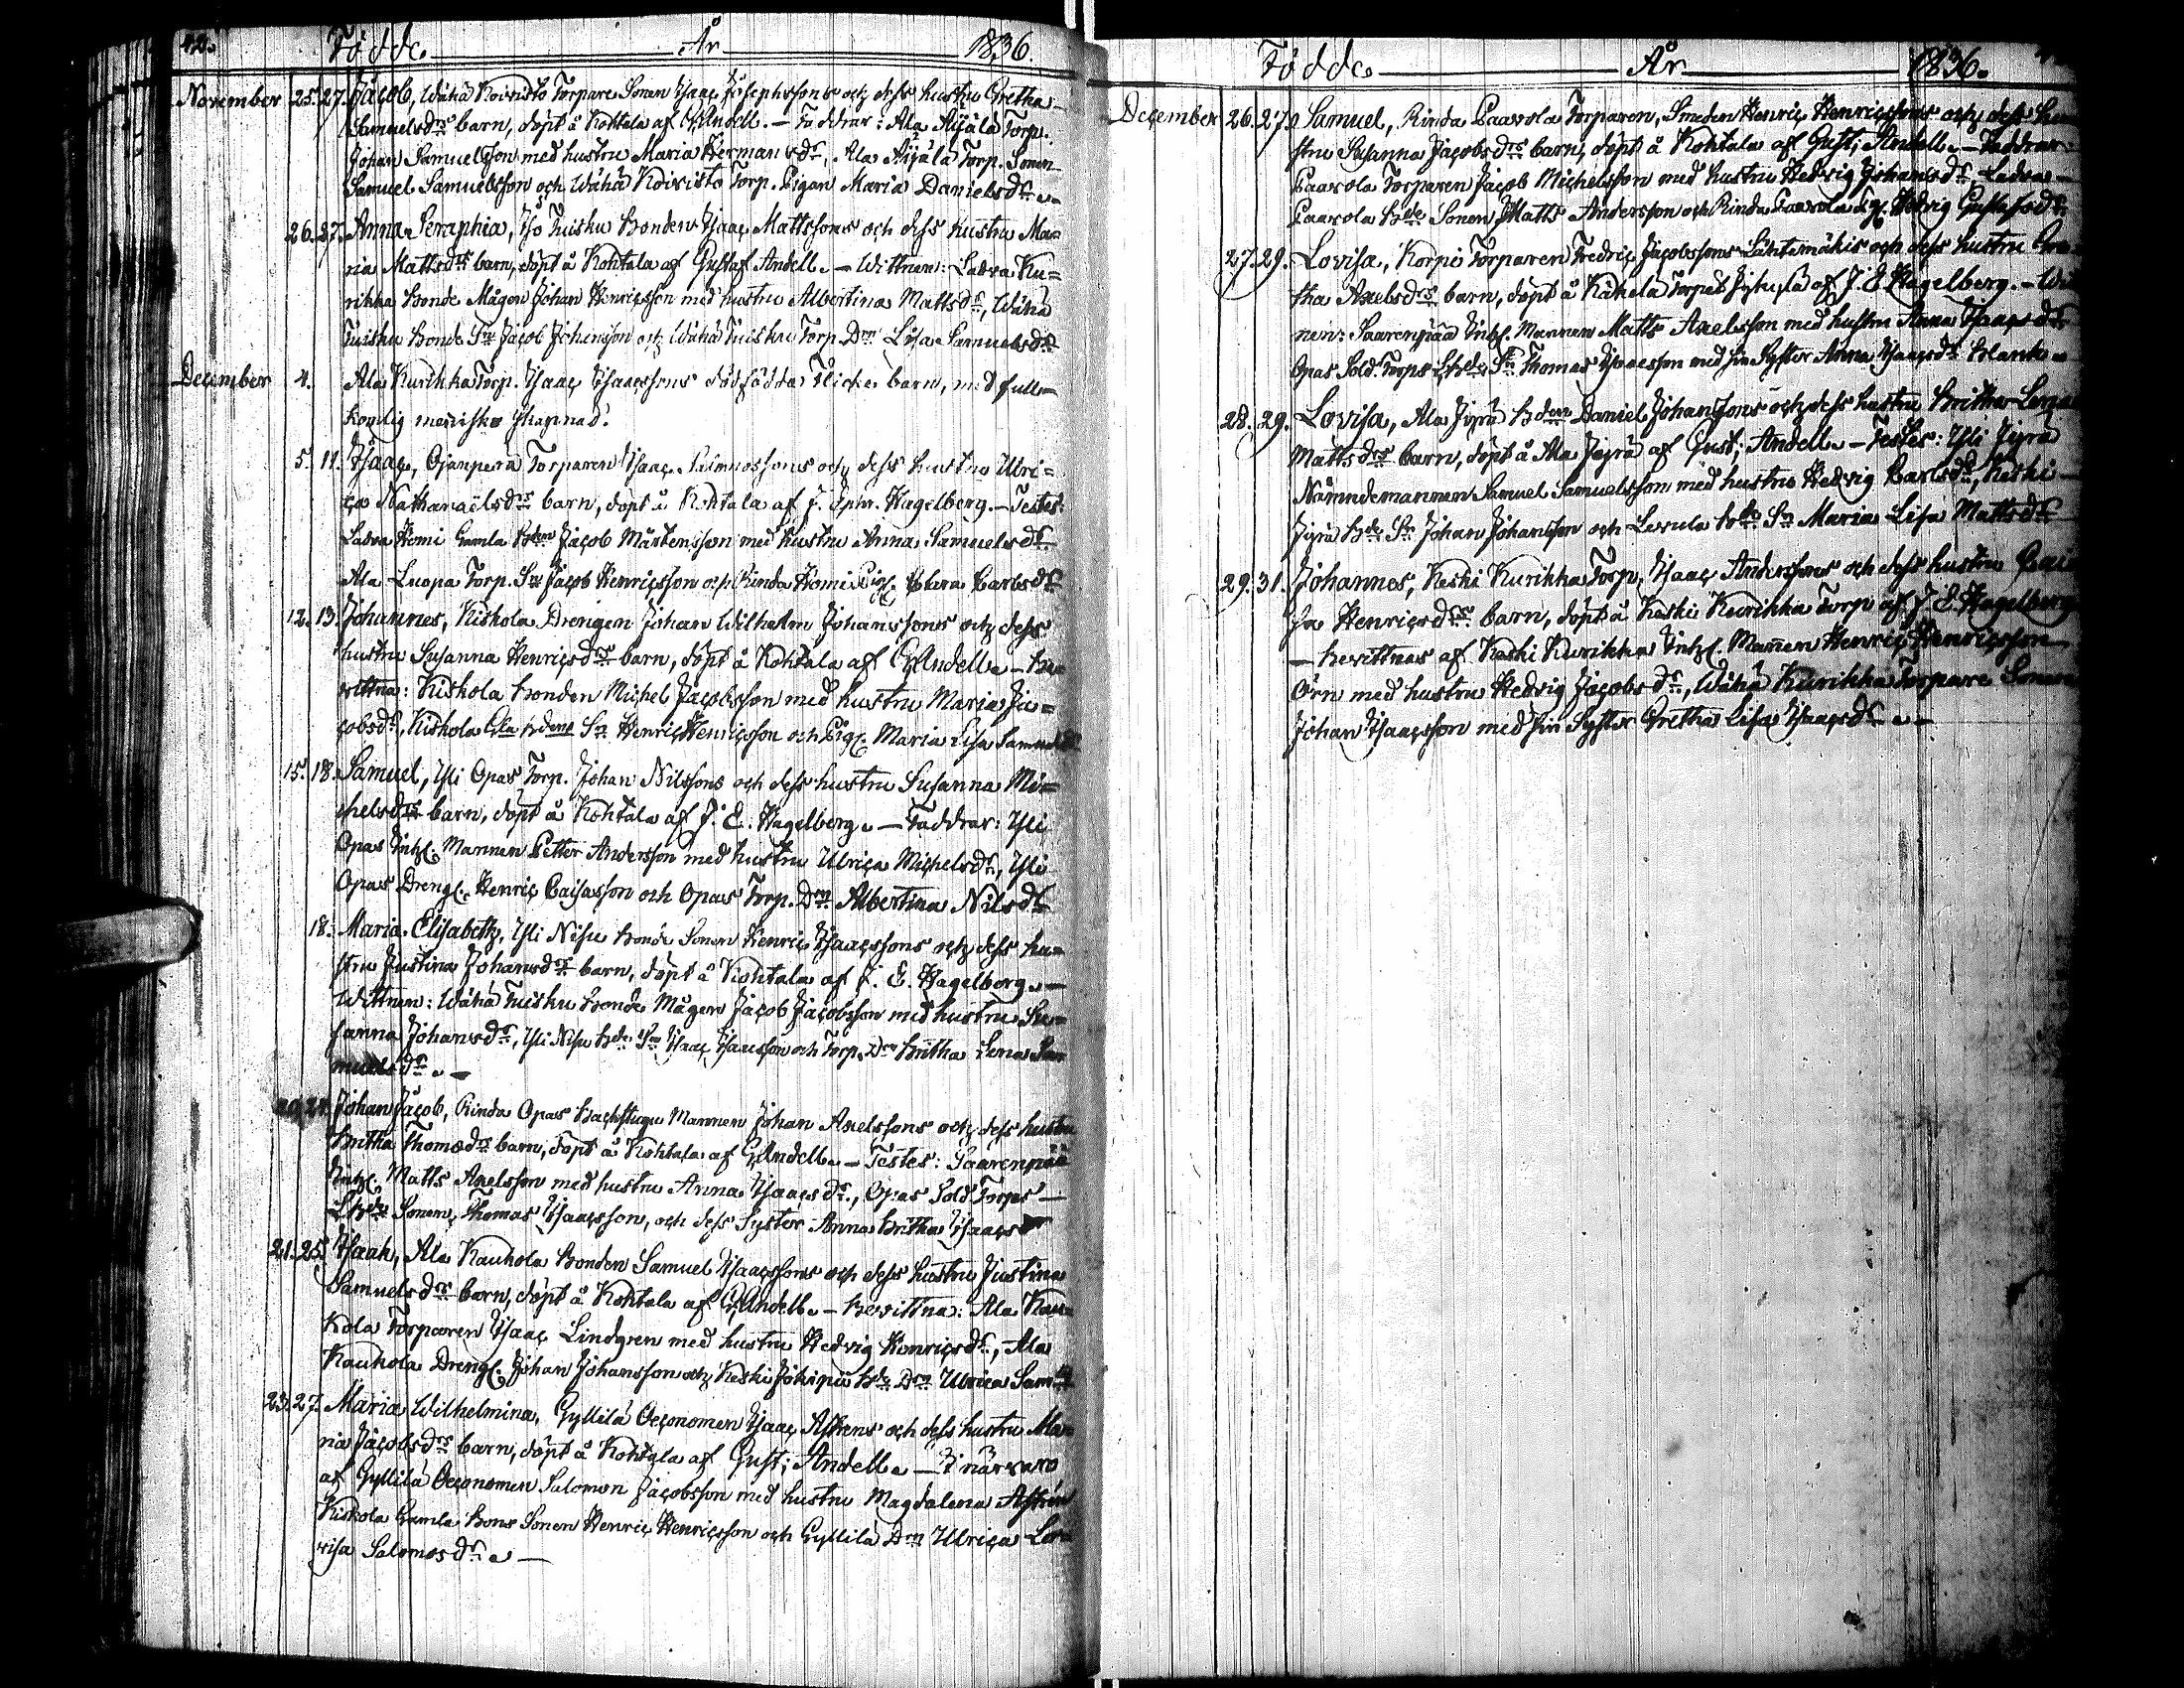 42. Födde År 1836.
November 25. 27. Jacob, Wähä Koivisto Torpare Sonen Isaac Josephssons och dess hustru Gretha
Samuelsdrs barn, döpt å Kohtala af G. Andell. – Faddrar: Ala Äijälä Torp.
Johan Samuelsson med hustru Maria Hermansdr, Ala Äijälä Torp. Sonen
Samuel Samuelsson och Wähä Koivisto Torp. Pigan Maria Danielsdr. –
26. 27. Anna Seraphia, Iso Tuisku Bonden Isaac Mattssons och dess hustru Ma=
ria Mattsdrs barn, döpt å Kohtala af Gustaf Andell. – Wittnen: Ladva Ku=
rikka Bonde Mågen Johan Henricsson med hustru Albertina Mattsdr, Wähä
Tuisku Bonde Sn Jacob Johansson och Wähä Tuisku Torp. Drn Lisa Samuelsdr
December 4. Ala Kurikka Torp. Isaac Isaacssons dödfödda Flicke barn, med full=
komlig menisko skapnad.
5. 11. Isaac, Ojanperä Torparen Isaac Saimnossons och dess hustru Ulri=
ca Nathanaëlsdrs barn, döpt å Kohtala af J. Ephr. Hagelberg. – Testes:
Ladva Homi Gamla Bden Jacob Mårtensson med hustru Anna Samuelsdr
Ala Luopa Torp. Sn Jacob Henricsson och Rinda Homi Pig. Clara Carlsdr
12. 13. Johannes, Kiskola Drengen Johan Wilhelm Johanssons och dess
hustru Susanna Henricsdrs barn, döpt å Kohtala af G. Andell. – Be=
vittna: Kiskola Bonden Michel Jacobsson med hustru Maria Ja=
cobsdr, Kiskola Gla Bdens Sn Henric Henricsson och Pig. Maria Lisa Samuelsdr
15. 18. Samuel, Yli Opas Torp. Johan Nilssons och dess hustru Susanna Mi=
chelsdrs barn, döpt å Kohtala af J. E. Hagelberg. – Faddrar: Yli
Opas Inh. Mannen Petter Andersson med hustru Ulrica Michelsdr, Yli
Opas Dreng. Henric Caisasson och Opas Torp. Drn Albertina Nilsdr
18. Maria Elisabeth, Yli Nisu Bonde Sonen Henric Isaacssons och dess hu=
stru Justina Johansdrs barn, döpt å Kohtala af J. E. Hagelberg. –
Wittnen: Wähä Tuisku Bonde Mågen Jacob Jacobsson med hustru Su=
sanna Johansdr, Yli Nisu Bde Sn Isaac Isacsson och Torp. Drn Britha Lena Sa=
muelsdr. –
Johan Jacob, Rinda Opas Backstugu Mannen Johan Axelssons och dess hustru
Britha Thomædrs barn, döpt å Kohtala af G. Andell. – Testes: Saarenpää
Inh. Matts Axelsson med hustru Anna Isaacsdr, Opas Sold. Torps –
Sonen, Thomas Isaacsson, och dess Syster Anna Britha Isaacsdr
21. 25. Isaak, Ala Kaukola Bonden Samuel Isaacssons och dess hustru Justina
Samuelsdrs barn, döpt å Kohtala af G. Andell. – Bevittna: Ala Kau=
kola Torparen Isaac Lindgren med hustru Hedvig Henricsdr, Ala
Kaukola Dreng. Johan Johansson och Keski Jokipii Bde Drn Ulrica Samdr
23. 27. Maria Wilhelmina, Gyllilä Oeconomen Isaac Astrens och dess hustru Ma=
ria Jacobsdrs barn, döpt å Kohtala af Gust. Andell. – I närvaro
af Gyllilä Oeconomen Salomon Jacobsson med hustru Magdalena Astrén
Kiskola Gamla Bons Sonen Henric Henricsson och Gyllilä Drn Ulrica Lo=
visa Salomosdr. –
Födde År 1836.
December 26. 27. Samuel, Rinda Paavola Torparen, Smeden Henric Henricssons och dess hu=
stru Susanna Jacobsdrs barn, döpt å Kohtala af Gust. Andell. – Faddrar
Paavola Torparen Jacob Michelsson med hustru Hedvig Johansdr, Ladva –
Paavola Bde Sonen Matts Andersson och Rinda Paavola Pig. Hedvig Gustafsdr
27. 29. Lovisa, Korpi Torparen Fredric Jacobssons Lähtemäkis och dess hustru Gre=
tha Axelsdrs barn, döpt å Käkelä Torpet af J. E. Hagelberg. – Wit
nen: Saarenpää Inh. Mannen Matts Axelsson med hustru Anna Isaacsdr
Opas Sold. Torps Sn Thomas Isacsson med sin Syster Anna Isaacsdr Blank. –
28. 29. Lovisa, Ala Jyrä Bden Daniel Johanssons och dess hustru Britha Lena
Mattsdrs barn, döpt å Ala Jyrä af Gust. Andell. – Testes: Yli Jyrä
Nämndemannen Samuel Samuelsson med hustru Hedvig Carlsdr, Keski –
Jyrä Bde Sn Johan Johansson och Levula Bde Sn Maria Lisa Mattsdr
29. 31. Johannes, Keski Kurikka Torp. Isaac Anderssons och dess hustru Cai
sa Henricsdrs barn, döpt å Keski Kurikka Torp af J. E. Hagelberg
– Bevittnas af Keski Kurikka Inh. Mannen Henric Henricsson
Örn med hustru Hedvig Jacobsdr, Wähä Kurikka Torpare Sonen
Johan Isaacsson med sin Syster Gretha Lisa Isaacsdr. –